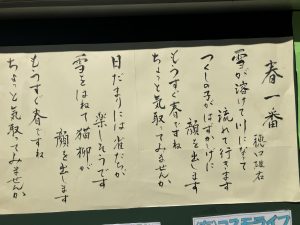 春一番
穂口雄右
雪が溶けて川になって
流れて行きます
つくしの子がはずかしげに
顔を出します
もうすぐ春ですね
ちょっと気取ってみませんか
日だまりには雀たちが
楽しそうです
雪をはねて猫柳が
顔を出します
もうすぐ春ですね
ちょっと気取ってみませんか